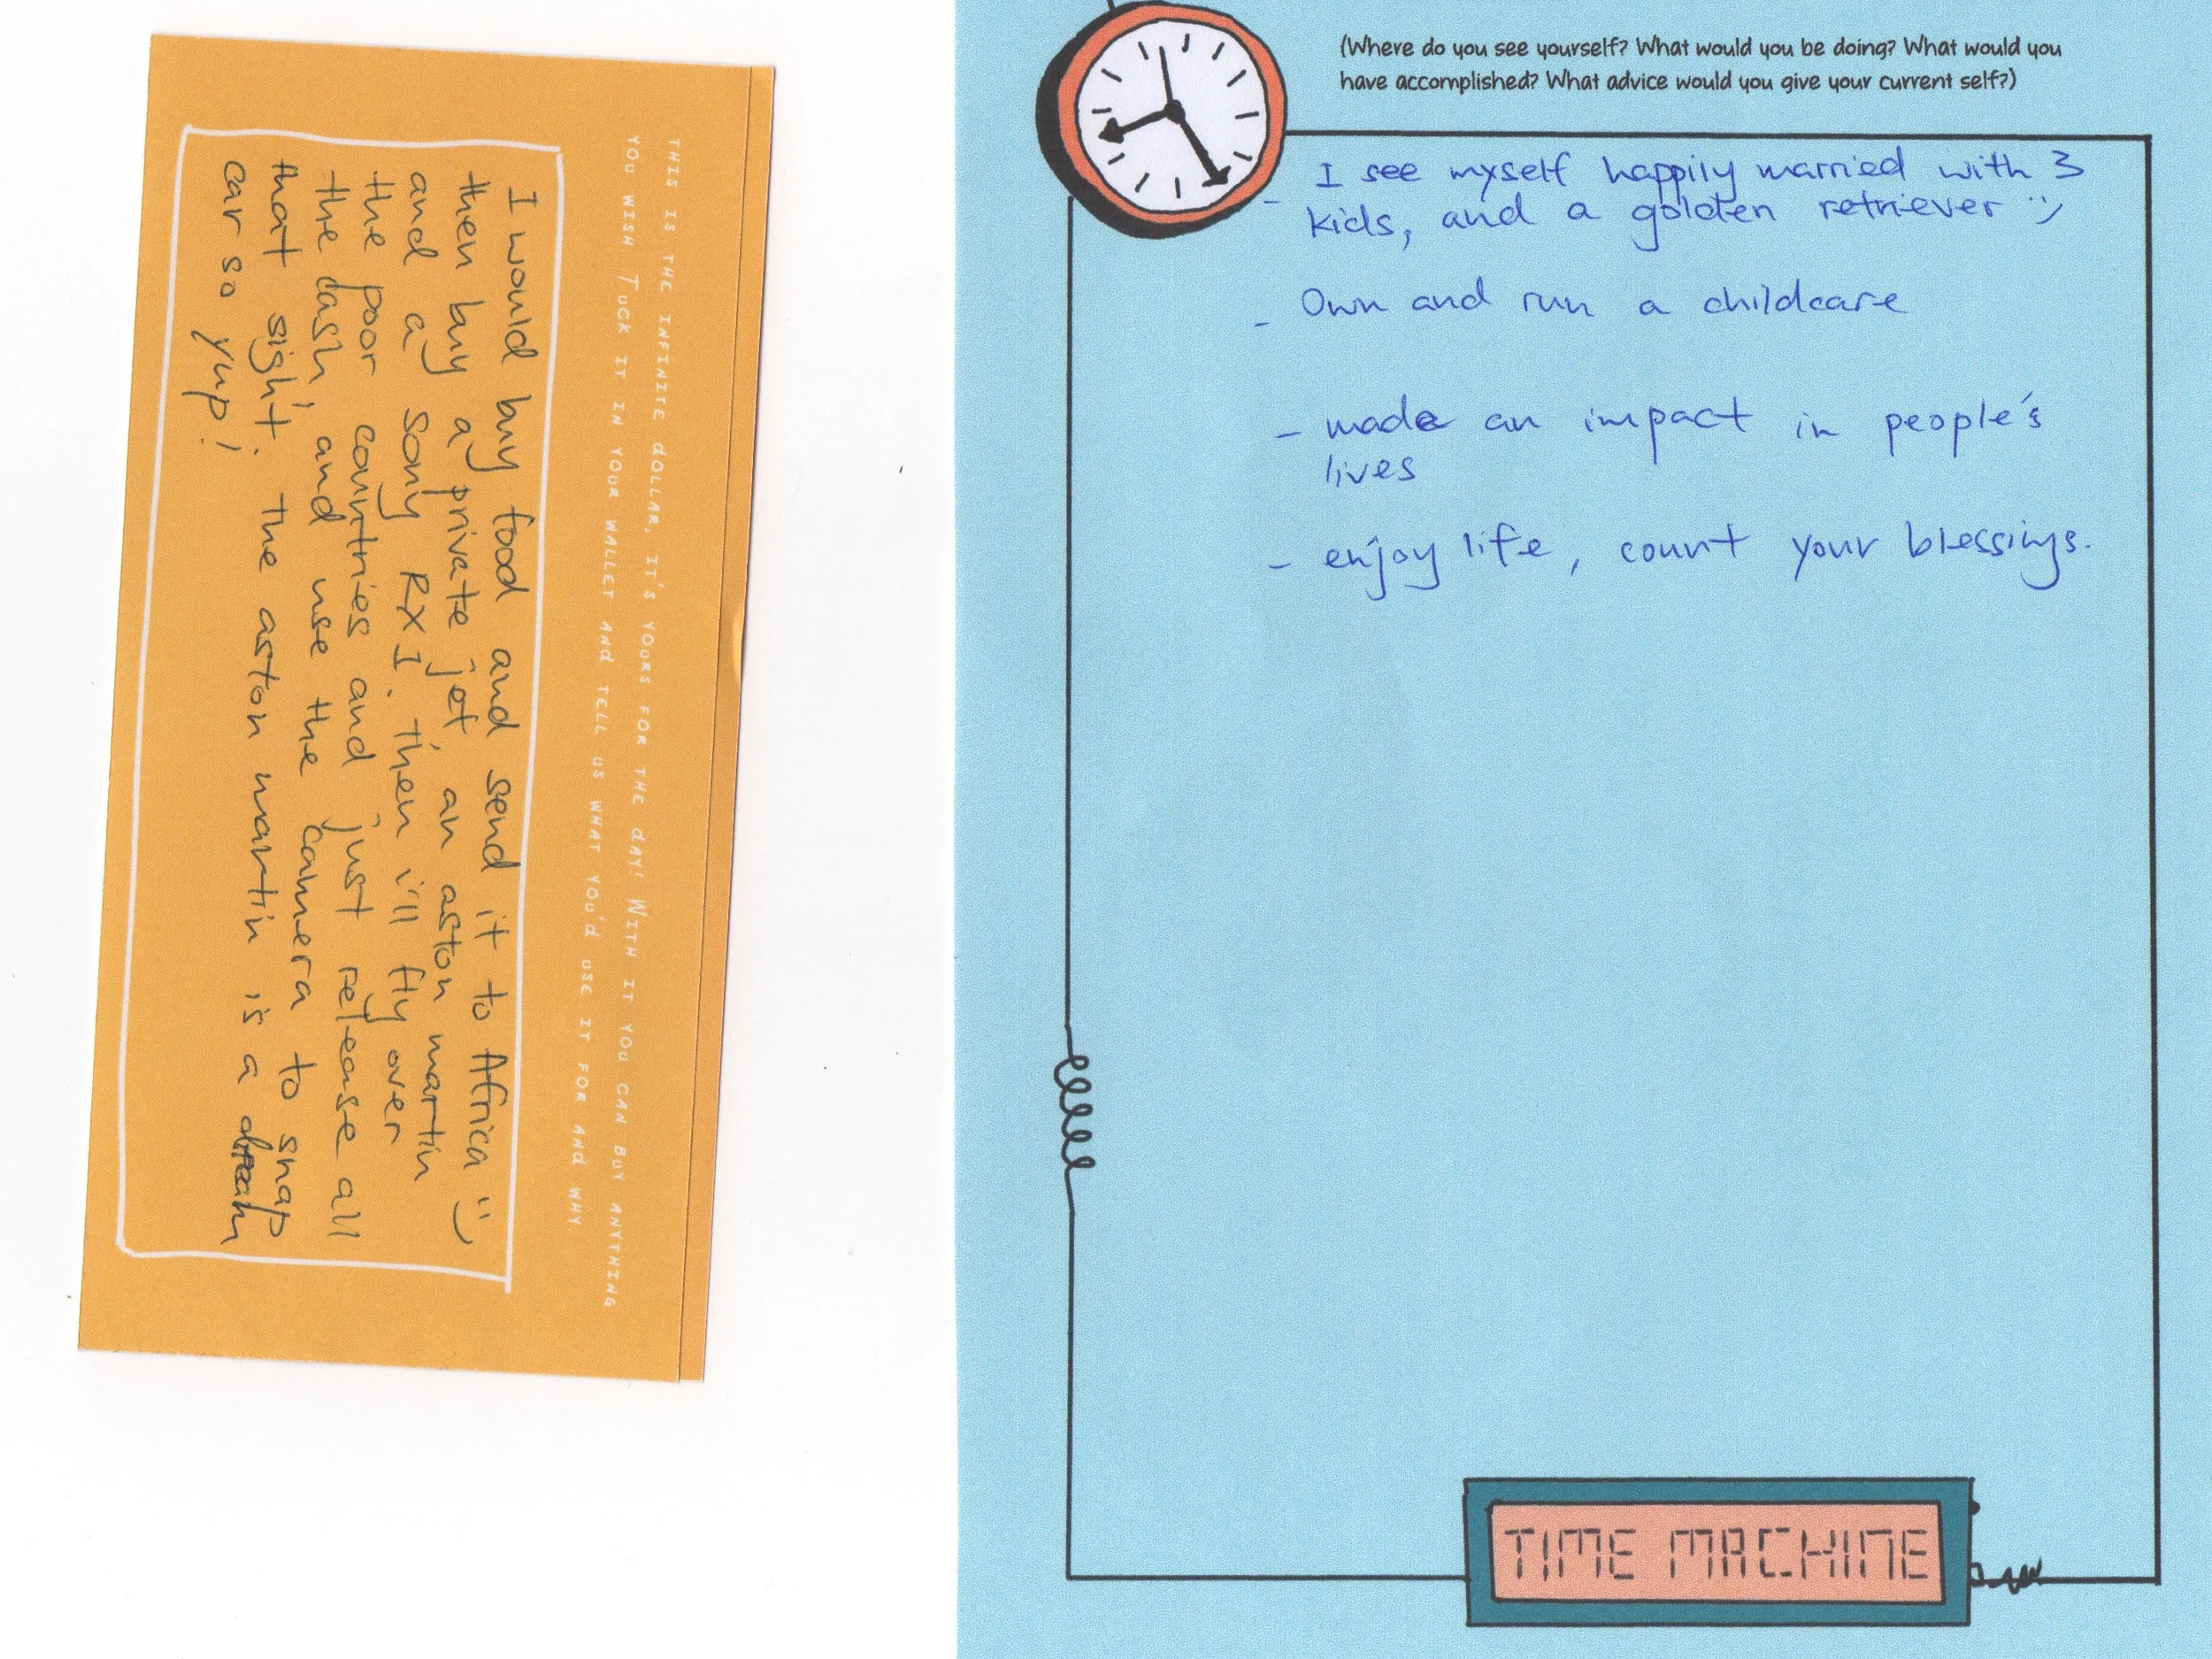 THIS IS THE INFINITE dOLLAR, IT'S YOURS FOR THE dAY! WITH IT YOU CAN BUY ANYTHING
YOU WISH. TUCK IT IN YOUR WALLET ANd TELL US WHAT YOU'd USE IT FOR ANd WHY.
I would buy food and send it to Africa :)
then buy a private jet, an aston martin
and a sony RX1. Then i'll fly over
the poor countries and just release all
the cash, and use the camera to snap
that sight. The aston martin is a dream
car so yup!
(Where do you see yourself? What would you be doing? What would you
have accomplished? What advice would you give your current self?)
- I see myself happily married with 3
kids, and a golden retriever :)
- Own and run a childcare
- made an impact in people's
lives
- enjoy life, count your blessings.
TIME MACHINE